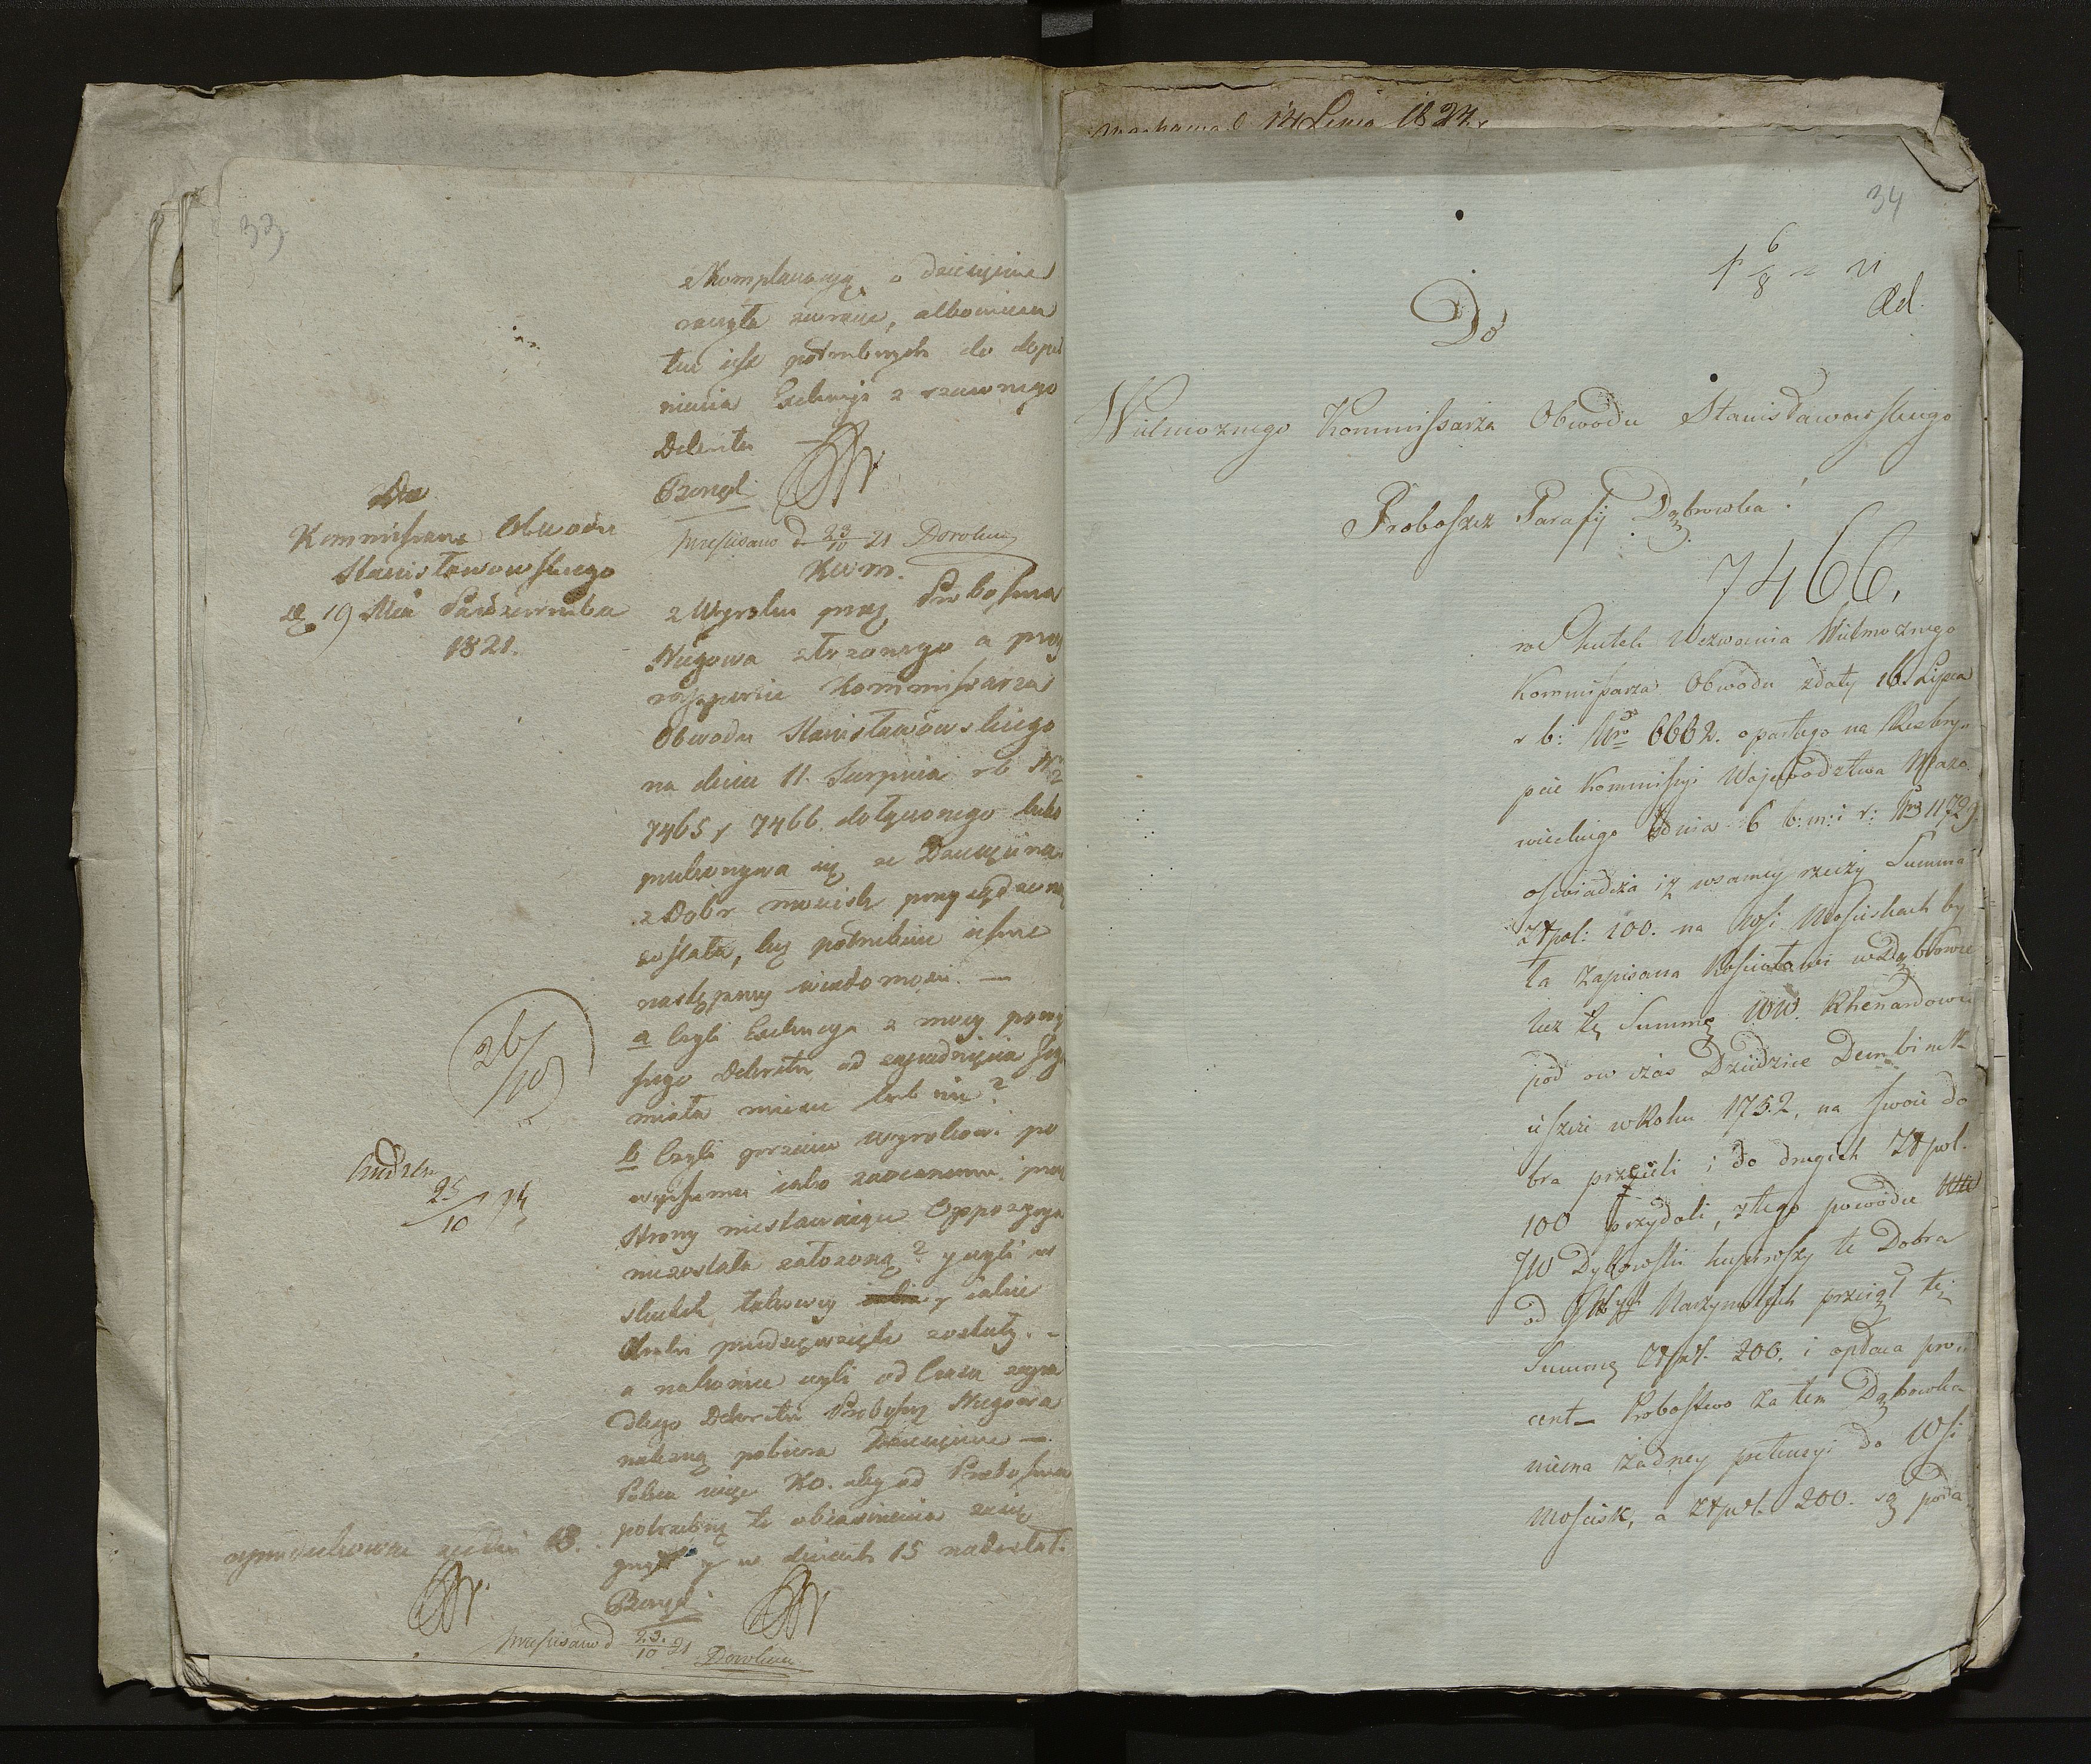 33
z Komplanacyą o dziesięcinę
raczyła zwrócić, albowiem
tu są potrzebnych do dopeł
nienia Exekucyi z rzeczonego
Dekretu
przepisano d 23/10 21
Do
Kommissarza Obwodu
Stanisławowskiego
d. 19 Mca Października
1821.
KWM.
z Wyroku przez Proboszcza
Niegowa złożonego a przy
rapporcie Kommissarza
Obwodu Stanisławowskiego
na dniu 11. Sierpnia rb N
7465 y 7466. dołączonego lubo
przekonywa się że Dziesięcina
z Dobr przysądzona
została, lecz potrzebne
następujące wiadomości. —
a Czyli Exekucya z mocy powyż
szego Dekretu od zapadnięcia
miała miejsce lub nie?
b Czyli przeciw wyrokowi po
wyższemu jako zaocznemu przez
Strony niestawaiące Oppozycya
niezostała założoną? y czyli w
skutek takowey y iakie
kroki przedsięwzięte zostały. –
a nakoniec czyli od Czasu zapa
dłego Dekretu Proboszcz Niegowa
należną pobiera Dziesięcinę —.
Poleca więc KO. aby od Proboszcza
potrzebne te obiaśnienia zacią
gnął y w dniach 15 nadesłał.
26/10
25/10
przepisano d 23/10 21
14 Lipca 1824.
34
6/8
ad.
Do
Wielmożnego Kommissarza Obwodu Stanisławowskiego
Proboszcz Parafij Dąbrowka!
7466.
w Skutek Wezwania Wielmożnego
Kommissarza Obwodu zdaty 16. Lipca
r b: Nro 6662. opartego na Reskryp
cie Kommissyi Wojewodztwa Mazo
wieckiego zdnia 6 b: m: i r: Nro 11729
oswiadcza iż wsamey rzeczy Summa
Złpol: 100. na Wsi Mościskach by
ła zapisana Kościołowi w Dąbrowce
lecz tę Summę WW. Rhenardowie
pod ow czas Dziedzice Dembinek
ieszcze w Roku 1752, na swoie do
bra przeieli i do drugich Złpol.
100 przydali, ztego powodu
JW Dybowski kupiwszy te Dobra
od Karzymskich przeiął tę
Summę Złpol. 200. i opłaca pro
cent — Probostwo za tem Dąbrowka
niema żadney pretensyi do Wsi
Mościsk, a Złpol. 200. są poda